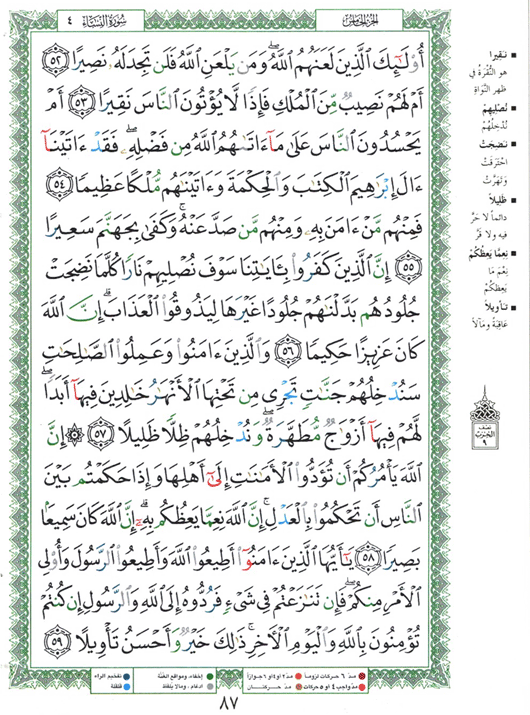 الجزء الخامس
سورة النساء ٤
أُوْلَٰٓئِكَ ٱلَّذِينَ لَعَنَهُمُ ٱللَّهُۖ وَمَن يَلْعَنِ ٱللَّهُ فَلَن تَجِدَ لَهُۥ نَصِيرًا ٥٢
أَمْ لَهُمْ نَصِيبٌ مِّنَ ٱلْمُلْكِ فَإِذًا لَّا يُؤْتُونَ ٱلنَّاسَ نَقِيرًا ٥٣ أَمْ
يَحْسُدُونَ ٱلنَّاسَ عَلَىٰ مَآ ءَاتَىٰهُمُ ٱللَّهُ مِن فَضْلِهِۦۖ فَقَدْ ءَاتَيْنَآ
ءَالَ إِبْرَٰهِيمَ ٱلْكِتَٰبَ وَٱلْحِكْمَةَ وَءَاتَيْنَٰهُم مُّلْكًا عَظِيمًا ٥٤
فَمِنْهُم مَّنْ ءَامَنَ بِهِۦ وَمِنْهُم مَّن صَدَّ عَنْهُۚ وَكَفَىٰ بِجَهَنَّمَ سَعِيرًا
٥٥ إِنَّ ٱلَّذِينَ كَفَرُوا۟ بِـَٔايَٰتِنَا سَوْفَ نُصْلِيهِمْ نَارًا كُلَّمَا نَضِجَتْ
جُلُودُهُم بَدَّلْنَٰهُمْ جُلُودًا غَيْرَهَا لِيَذُوقُوا۟ ٱلْعَذَابَۗ إِنَّ ٱللَّهَ
كَانَ عَزِيزًا حَكِيمًا ٥٦ وَٱلَّذِينَ ءَامَنُوا۟ وَعَمِلُوا۟ ٱلصَّٰلِحَٰتِ
سَنُدْخِلُهُمْ جَنَّٰتٍ تَجْرِى مِن تَحْتِهَا ٱلْأَنْهَٰرُ خَٰلِدِينَ فِيهَآ أَبَدًاۖ
لَّهُمْ فِيهَآ أَزْوَٰجٌ مُّطَهَّرَةٌۖ وَنُدْخِلُهُمْ ظِلًّا ظَلِيلًا ٥٧ ۞ إِنَّ
ٱللَّهَ يَأْمُرُكُمْ أَن تُؤَدُّوا۟ ٱلْأَمَٰنَٰتِ إِلَىٰٓ أَهْلِهَا وَإِذَا حَكَمْتُم بَيْنَ
ٱلنَّاسِ أَن تَحْكُمُوا۟ بِٱلْعَدْلِۚ إِنَّ ٱللَّهَ نِعِمَّا يَعِظُكُم بِهِۦٓۗ إِنَّ ٱللَّهَ كَانَ سَمِيعًۢا
بَصِيرًا ٥٨ يَٰٓأَيُّهَا ٱلَّذِينَ ءَامَنُوٓا۟ أَطِيعُوا۟ ٱللَّهَ وَأَطِيعُوا۟ ٱلرَّسُولَ وَأُو۟لِى
ٱلْأَمْرِ مِنكُمْۖ فَإِن تَنَٰزَعْتُمْ فِى شَىْءٍ فَرُدُّوهُ إِلَى ٱللَّهِ وَٱلرَّسُولِ إِن كُنتُمْ
تُؤْمِنُونَ بِٱللَّهِ وَٱلْيَوْمِ ٱلْأَخِرِۚ ذَٰلِكَ خَيْرٌ وَأَحْسَنُ تَأْوِيلًا ٥٩
نقيرا
هو النُّقْرَةُ في
ظهر النَّوَاةِ
نُصْلِيهِمْ
نُدْخِلُهُمْ
نَضِجَتْ
احْتَرَقَتْ
وَتَهَرَّتْ
ظَلِيلاً
دائماً لا حَرَّ
فيه ولا قُرَّ
نِعِمَّا يَعِظُكُمْ
نِعْمَ مَا
يَعِظُكُمْ
تَأْوِيلاً
عَاقِبَةً وَمَآلاً
نصف
الحزب
٩
مدّ ٦ حركات لزوماً
مدّ ٢ أو ٤ أو ٦ جوازاً
مدّ واجب ٤ أو ٥ حركات
مدّ حركتان
إخفاء، ومواقع الغُنَّة
إدغام، وما لا يُلفظ
تفخيم الراء
قلقلة
٨٧